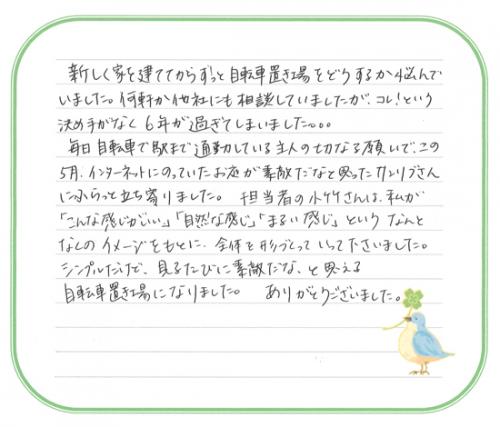 新しく家を建ててからずっと自転車置き場をどうするか悩んで
いました。何軒か他社にも相談していましたが、コレ!という
決め手がなく6年が過ぎてしまいました。。。
毎日自転車で駅まで通勤している主人の切なる願いで、この
5月、インターネットにのっていたお庭が素敵だなと思ったカンリブさん
にふらっと立ち寄りました。 担当者の小竹さんは、私が
「こんな感じがいい」「自然な感じ」「まるい感じ」という なんと
なくのイメージをもとに、全体を形づくっていって下さいました。
シンプルだけど、見るたびに素敵だな、と思える
自転車置き場になりました。 ありがとうございました。